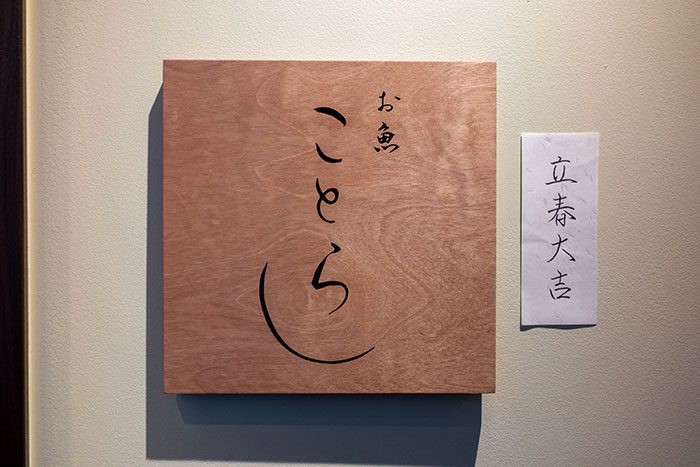 お魚
ことらし
立春大吉